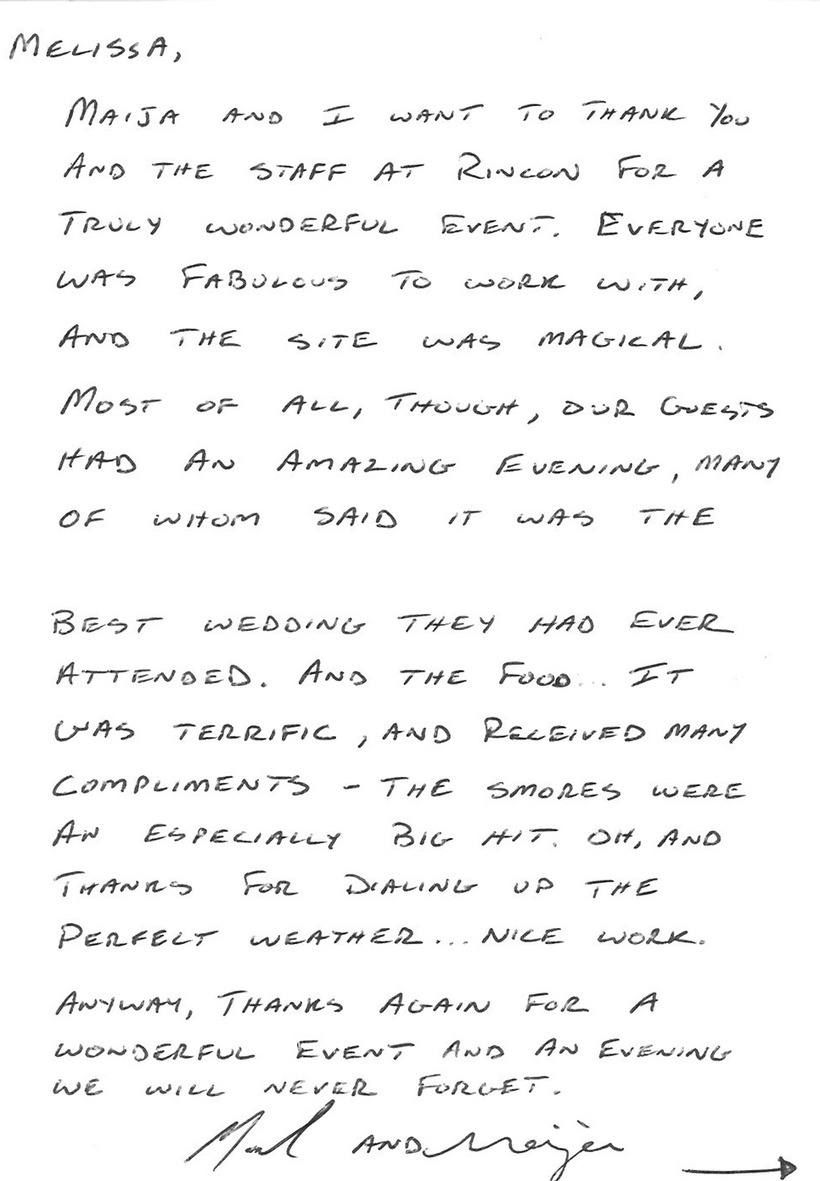 MELISSA,
MAIJA AND I WANT TO THANK YOU
AND THE STAFF AT RINCON FOR A
TRULY WONDERFUL EVENT. EVERYONE
WAS FABULOUS TO WORK WITH,
AND THE SITE WAS MAGICAL.
MOST OF ALL, THOUGH, OUR GUESTS
HAD AN AMAZING EVENING, MANY
OF WHOM SAID IT WAS THE
BEST WEDDING THEY HAD EVER
ATTENDED. AND THE FOOD... IT
WAS TERRIFIC, AND RECEIVED MANY
COMPLIMENTS - THE SMORES WERE
AN ESPECIALLY BIG HIT. OH, AND
THANKS FOR DIALING UP THE
PERFECT WEATHER... NICE WORK.
ANYWAY, THANKS AGAIN FOR A
WONDERFUL EVENT AND AN EVENING
WE WILL NEVER FORGET.
AND